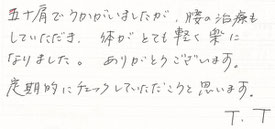 五十肩でうかがいましたが、腰の治療も
していただき、体がとても軽く楽に
なりました。ありがとうございます。
定期的にチェックしていただこうと思います。
T.T